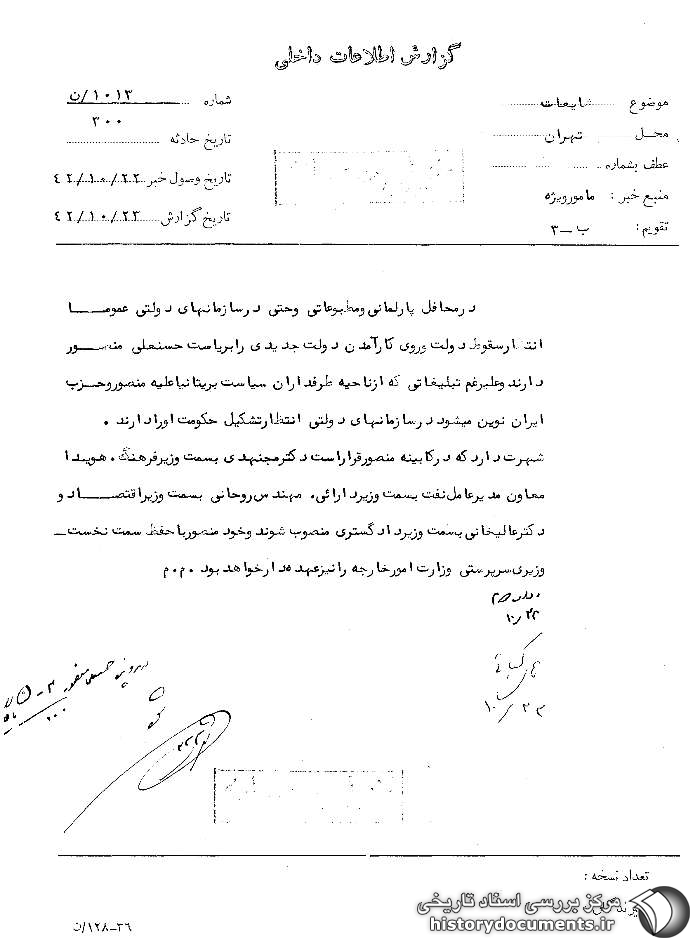 گزارش اطلاعات داخلی
موضوع شایعات
محل تهران
عطف بشماره
منبع خبر : مامورویژه
تقویم: ب ـ ۳
شماره ۱۰۱۳/ن
۳۰۰
تاریخ حادثه
تاریخ وصول خبر ۴۲/۱۰/۲۲
تاریخ گزارش ۴۲/۱۰/۲۳
درمحافل پارلمانی ومطبوعاتی وحتی درسازمانهای دولتی عمومـــا
انتظارسقوط دولت وروی کارآمدن دولت جدیدی رابریاست حسنعلی منصـــور
دارند وعلیرغم تبلیغاتی که ازناحیه طرفداران سیاست بریتانیاعلیه منصوروحـزب
ایران نوین میشود درسازمانهای دولتی انتظارتشکیل حکومت اورادارند .
شهرت دارد که درکابینه منصورقراراست دکترمجتهدی بسمت وزیرفرهنگ، هویدا
معاون مدیرعامل نفت بسمت وزیردارائی، مهندس روحانی بسمت وزیراقتصـــاد و
دکترعالیخانی بسمت وزیردادگستری منصوب شوند وخود منصورباحفظ سمت نخست ـ
وزیری سرپرستی وزارت امورخارجه رانیزعهده دارخواهد بود .م.م
۱۰/۲۲
۱۰/۲۳
تعداد نسخه :
۱۲۸-۳۶/ن
مرکز بررسی اسناد تاریخی
historydocuments.ir